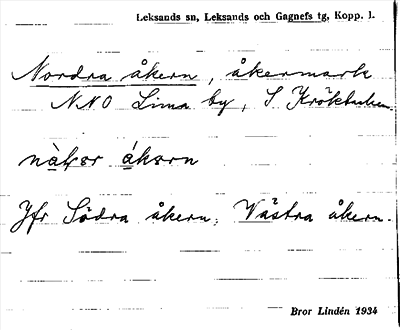 Leksands sn, Leksands och Gagnefs tg, Kopp. l.
Nordra åkern, åkermark
NNO Lima by, S Kröktuken
nàḷsr ákərn
Jfr Södra åkern, Västra åkern.
Bror Lindén 1934